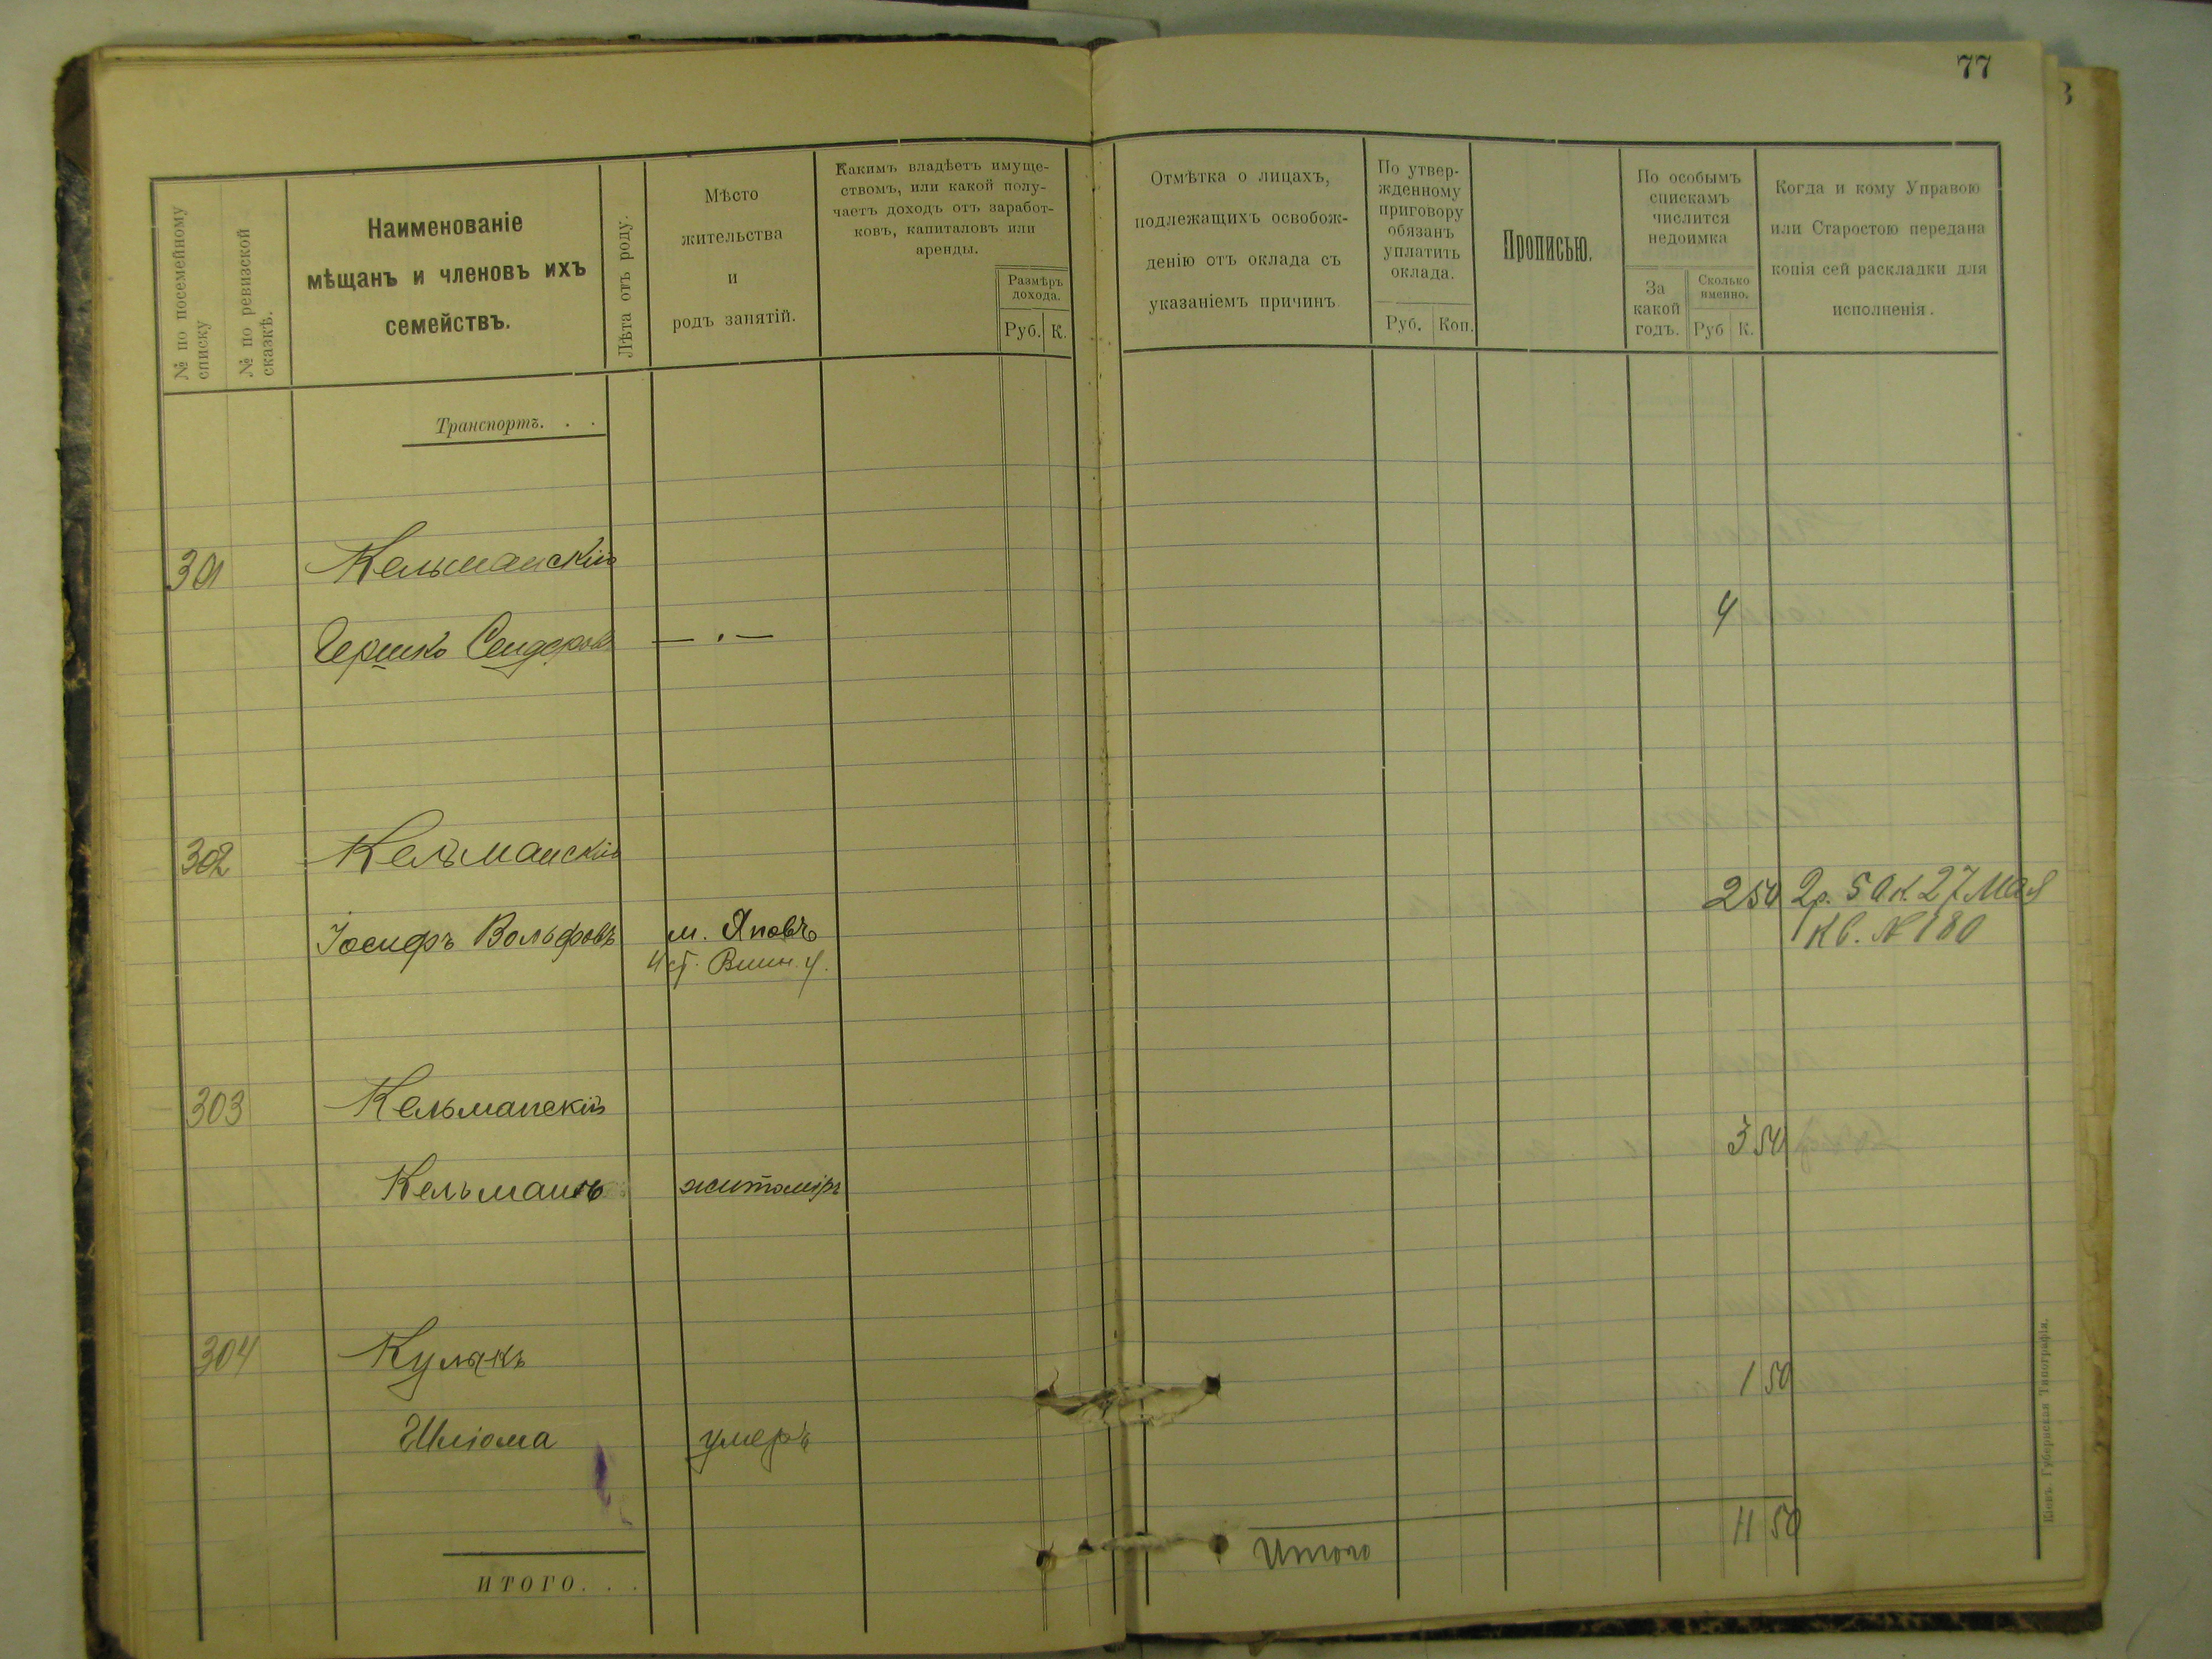 77
№ по посемейному списку
№ по ревизской сказкѣ.
Наименованіе
мѣщанъ и членовъ ихъ
семействъ.
Лѣта отъ роду.
Мѣсто
жительства
и
родъ занятій.
Какимъ владѣетъ имуще-
ствомъ, или какой полу-
чаетъ доходъ отъ заработ-
ковъ, капиталовъ или
аренды.
Размѣръ
дохода.
Руб. К.
Отмѣтка о лицахъ,
подлежащихъ освобож-
денію отъ оклада съ
указаніемъ причинъ
По утвер-
жденному
приговору
обязанъ
уплатить
оклада.
Руб. Коп.
Прописью.
По особымъ
спискамъ
числится
недоимка
За
какой
годъ.
Сколько
именно.
Руб К.
Когда и кому Управою
или Старостою передана
копія сей раскладки для
исполненія.
Транспортъ. . .
301 Кельманскій
Гершко Сендеровъ — . — 4
302 Кельманскій
250 2р. 50к. 27 Мая
Іосифъ Вольфовъ м. Яновъ кв. № 180
ст. Винн. у.
303 Кельманскій
3 50
Кельманъ житоміръ
304 Кулякъ
1 50
Шліома умеръ
11 50
Итого
ИТОГО. . .
Кіевъ. Губернская Типографія.